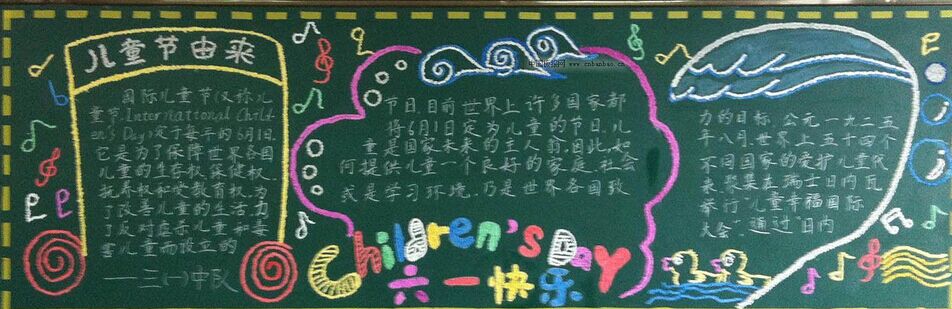 儿童节由来
国际儿童节(又称儿
童节,International Child-
en's Day)定于每年的6月1日.
它是为了保障世界各国
儿童的生存权、保健权、
抚养权和受教育权,为
了改善儿童的生活,为
了反对虐杀儿童和毒
害儿童而设立的
三(一)中队
节日.目前世界上许多国家都
将6月1日定为儿童的节日.儿
童是国家未来的主人翁.因此,如
何提供儿童一个良好的家庭、社会
或是学习环境.乃是世界各国致
力的目标.公元一九二五
年八月.世界上五十四个
不同国家的爱护儿童代
表,聚集在瑞士日内瓦
举行"儿童幸福国际
大会".通过"日内
Children's Day
六一快乐
www.cnbanbao.cn